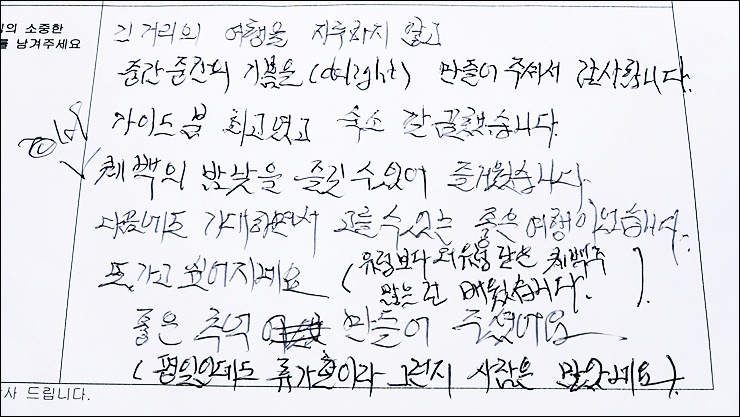 님의 소중한
를 남겨주세요
긴거리의 여행을 지루하지 않고
중간중간의 기쁨을 (delight) 만들어 주셔서 감사합니다.
가이드분 최고였고 숙소 깔끔했습니다
퀘백의 밤낮을 즐길수있어 즐거웠습니다.
다음에도 기대하면서 고를수있는 좋은 여행이였습니다.
또 가고 싶어지네요 (유럽보다 더유럽 같은 퀘백주
많은걸 배웠습니다. ).
좋은 추억 만들어 주셨어요
(평일인데도 휴가철이라 그런지 사람은 많았네요)
사 드립니다.